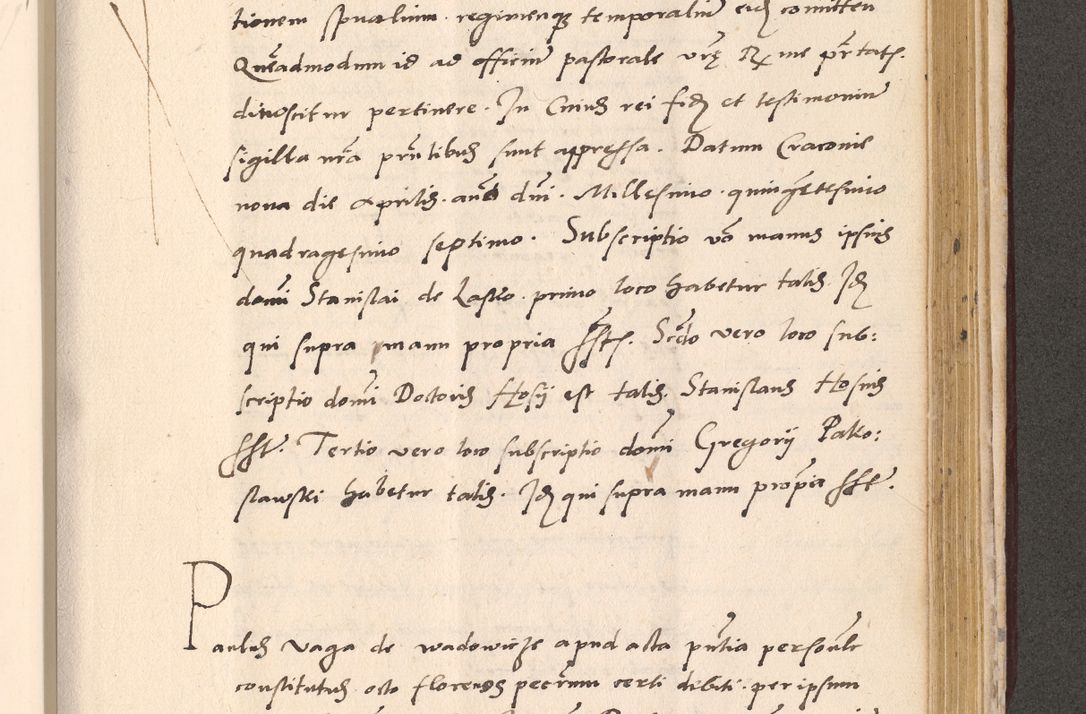 tionem spualium regimenq temporaliu eid comitten
Queadmodum id ad officiu pastorale vre R me prtats.
dinoscitur pertinere. In Cuius rei fid et testimoniu
sigilla nra pntibus sunt appressa. Datum Cracovie
nona die Aprilis. ano dni. Millesimo quingetesimo
quadragesimo septimo. Subscriptio vo manus ipsius
domi Stanislai de Lasko primo loco habetur talis. Id
qui supra manu propria sst. Scdo vero loco sub:
scriptio domi Doctoris Hosij est talis. Stanislaus Hosius
sst. Tertio vero loco subscriptio domi Gregorij Pako:
slawski habetur talis. Id qui supra manu propia sst.
Paulus Vaga de wadowicze apud acta pntia personale
constitutus octo florenos pecrum certi debiti per ipsum